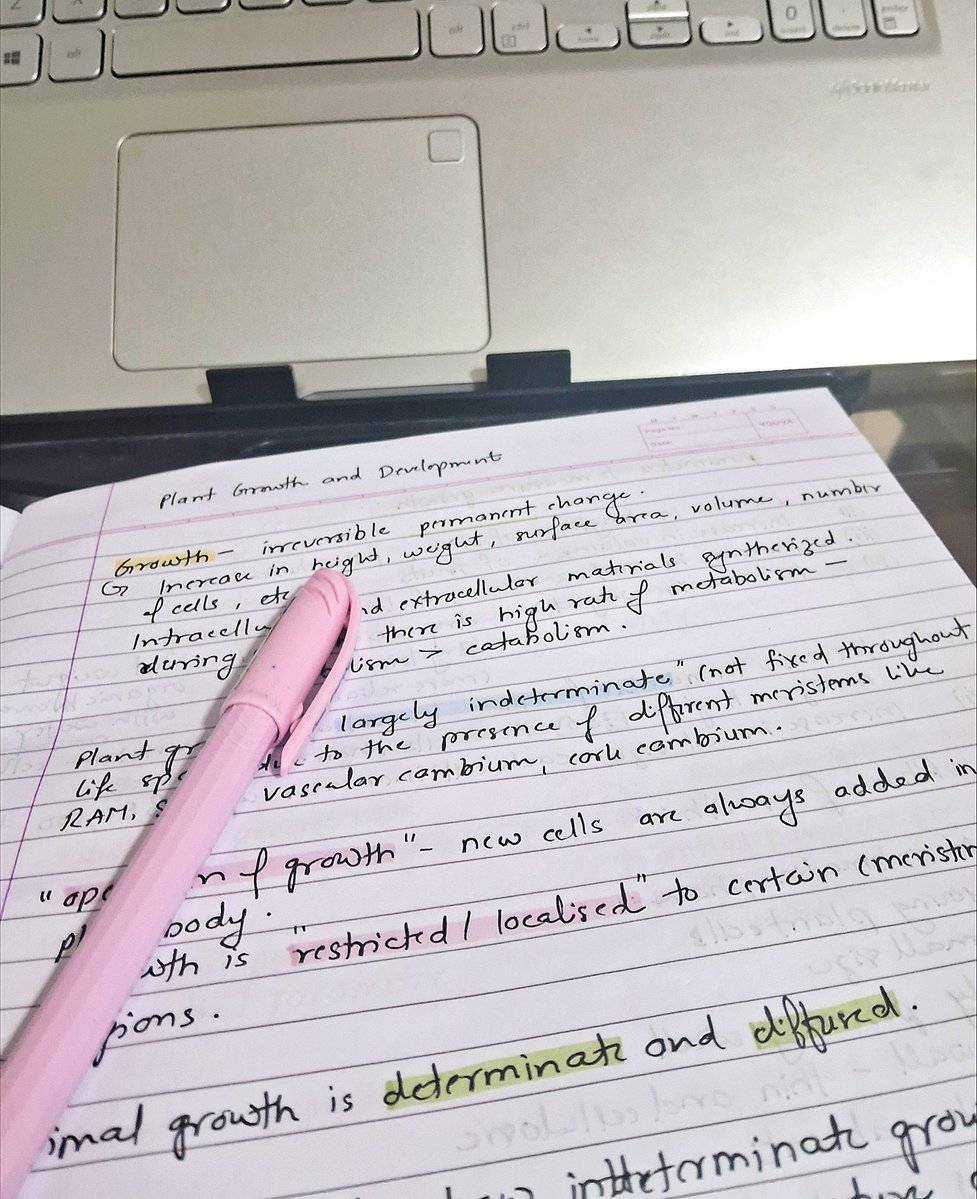 alt
alt
ctrl
home
end
0
enter
M T W T F S S
Page No.:
Date:
YOUVA
Plant Growth and Development
Growth - irreversible permanent change.
↳ Increase in height, weight, surface area, volume, number
of cells, etc
Intracellu nd extracellular materials synthesized.
during there is high rate of metabolism -
lism > catabolism.
Plant gr largely indeterminate" (not fixed throughout
life sp due to the presence of different meristems like
RAM, S vascular cambium, cork cambium.
"ope n of growth" - new cells are always added in
pl body.
wth is "restricted / localised" to certain (meristem
gions.
imal growth is determinate and diffused.
indeterminate grow